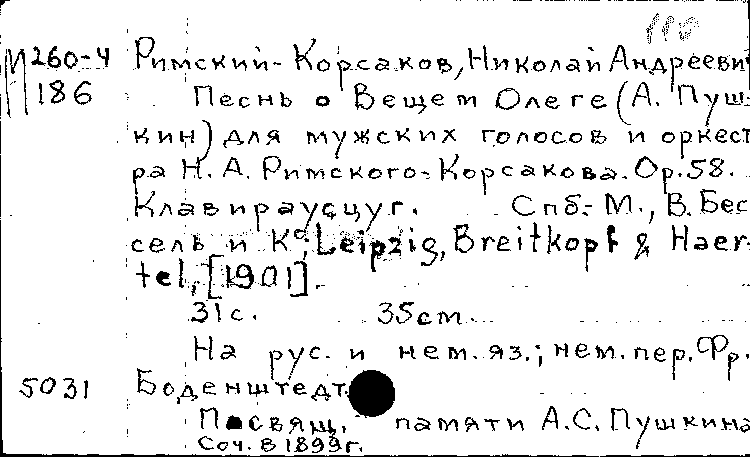 118
М260-4 Римский-Корсаков, Николай Андрееви
186 Песнь о Вещем Олеге (А. Пуш-
кин) для мужских голосов и оркест
ра Н. А. Римского-Корсакова. Ор.58.
Клавираусцуг. Спб.-М., В. Бес
сель и К°; Leipzig, Breitkopf & Haer-
tel, [1901].
31с. 35см.
На рус. и нем. яз.; нем. пер. Фр.
5031 Боденштедт.
Посвящ. памяти А.С. Пушкина
Соч. в 1899г.